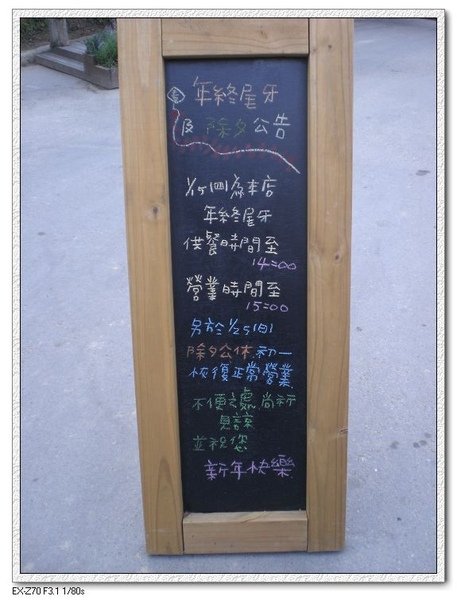 年終尾牙
及除夕公告
1/15(四)為本店
年終尾牙
供餐時間至
14:00
營業時間至
15:00
另於1/25(日)
除夕公休.初一
恢復正常營業
不便之處,尚祈
見諒
並祝您
新年快樂
EX-Z70 F3.1 1/80s